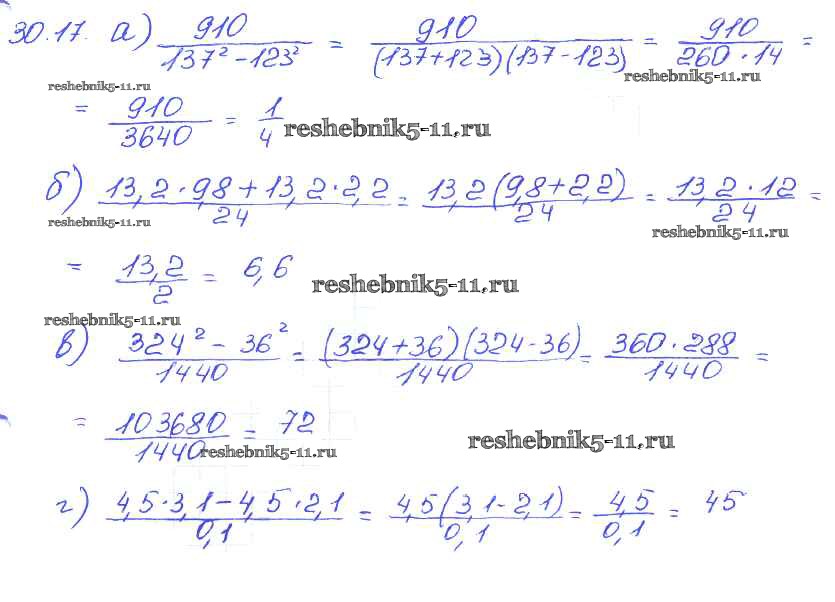 30.17. а) 910/(137² - 123²) = 910/((137+123)(137-123)) = 910/(260·14) =
reshebnik5-11.ru reshebnik5-11.ru
= 910/3640 = 1/4 reshebnik5-11.ru
б) (13,2·98 + 13,2·2,2)/24 = 13,2(98+2,2)/24 = 13,2·12/24 =
reshebnik5-11.ru reshebnik5-11.ru
= 13,2/2 = 6,6 reshebnik5-11.ru
reshebnik5-11.ru
в) (324² - 36²)/1440 = (324+36)(324-36)/1440 = 360·288/1440 =
= 103680/1440 = 72 reshebnik5-11.ru
reshebnik5-11.ru
г) (4,5·3,1 - 4,5·2,1)/0,1 = 4,5(3,1-2,1)/0,1 = 4,5/0,1 = 45